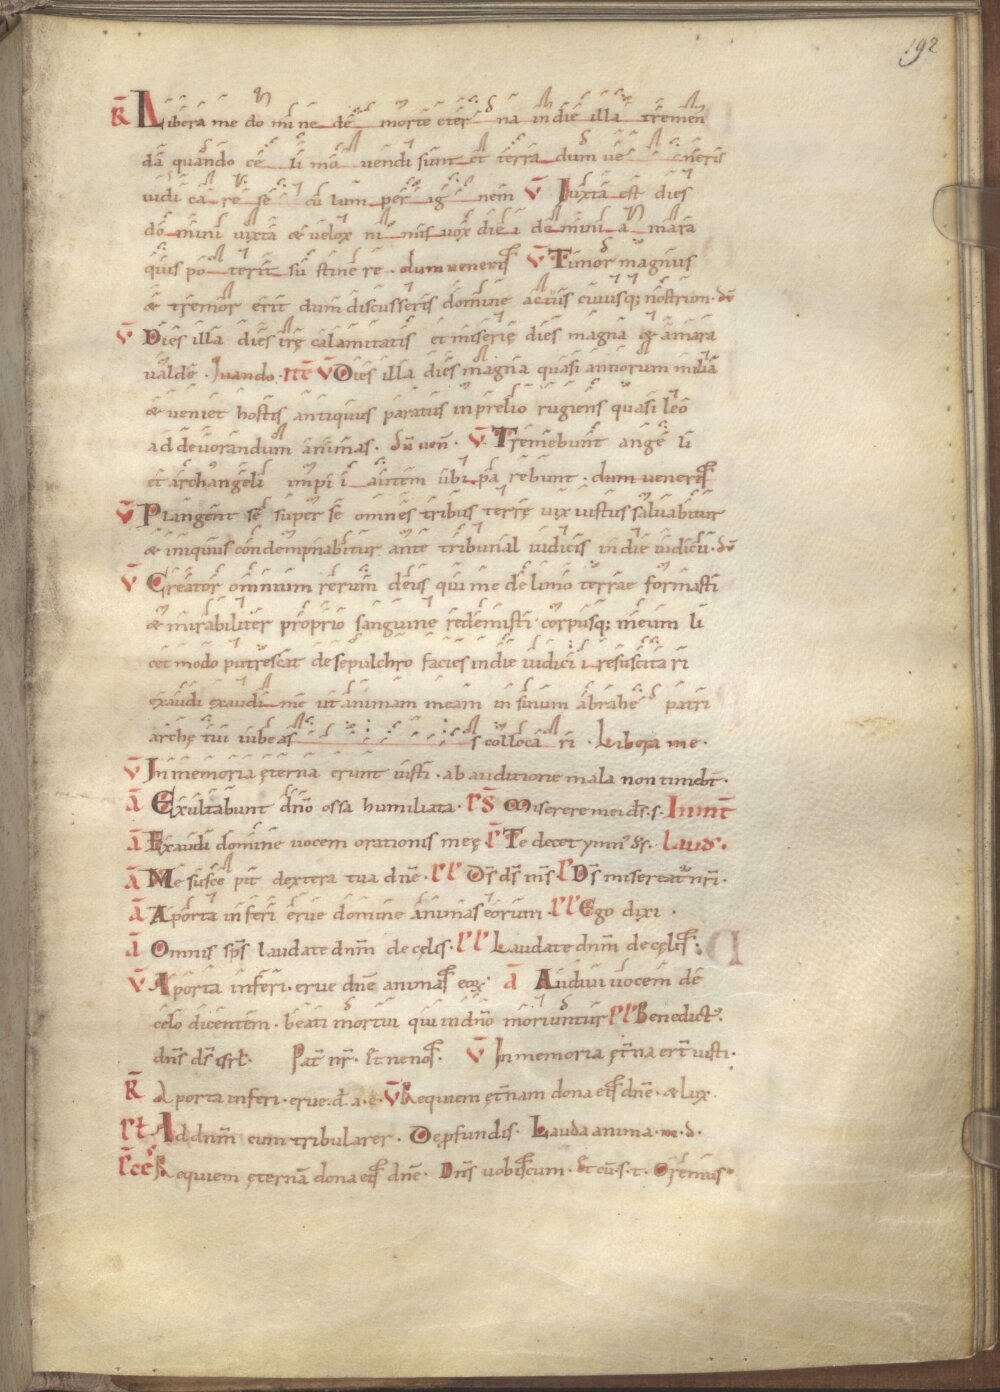 192
R̄ Libera me do mi ne de morte eter na in die illa tremen
da quando ce li mo vendi sunt et terra dum ve neris
iudi ca re se cu lum per ig nem V̄ Iuxta est dies
do mini iuxta & velox ni mis vox die i do mini a mara
quis po terit su stine re . dum veneris V̄ Timor magnus
& tremor erit dum discusseris domine actus cuiusq; nostrum . dū
V̄ Dies illa dies irę calamitatis et miserię dies magna & amara
valde . Quando . itē V̄ Dies illa dies magna quasi annorum milia
& veniet hostis antiquus paratus in prelio rugiens quasi leo
ad devorandum animas . dū ven̄ . V̄ Tremebunt ange li
et archangeli impi i autem ubi pa rebunt . dum veneris
V̄ Plangent se super se omnes tribus terrę vix iustus salvabitur
& iniquus condempnabitur ante tribunal iudicis in die iudicii . dū
V̄ Creator omnium rerum deus qui me de limo terrae formasti
& mirabiliter proprio sanguine redemisti corpusq; meum li
cet modo putrescat de sepulchro facies in die iudici i resuscita ri
exaudi exaudi me ut animam meam in sinum abrahe patri
archę tui iubeas colloca ri . Libera me .
V̄ In memoria ęterna erunt iusti . ab auditione mala non timeb̄t .
Ā Exultabunt dn̄o ossa humiliata . ps̄ Miserere mei ds̄ . s . Iuuit̄
Ā Exaudi domine vocem orationis meę p̄ Te decet ymn' ds̄ . Laus .
Ā Me susce pit dextera tua dn̄e . pp Ds̄ ds̄ ms̄ . p Ds̄ misereatur nr̄i .
Ā A porta inferi erue domine animas eorum . pp Ego dixi .
Ā Omnis sps̄ laudate dn̄m de cęlis . pp Laudate dn̄m de cęlis .
V̄ A porta inferi . erue dn̄e animas eoꝝ . ā Audivi vocem de
celo dicentem . beati mortui qui in dn̄o moriuntur pp Benedict' .
dn̄s ds̄ isrl̄ . Pat̄ nr̄ . Et ne nos . V̄ In memoria ęt̄na er̄t iusti .
R̄ A porta inferi . erue . d . a . e . V̄ Requiem ęt̄nam dona eis dn̄e . & lux .
Ad dn̄m cum tribularer . De pfundis . Lauda anima . m . d .
Requiem ęternā dona eis dn̄e . Dn̄s vobiscum . Et cū . s . t . Oremus .